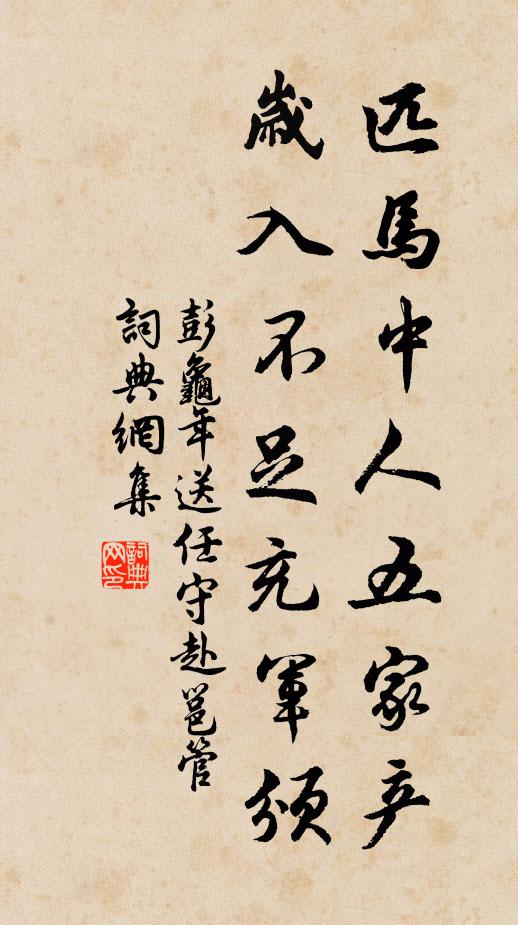 匹馬中人五家产
歲入不足充軍頒
彭龜年送任守赴邕管
詞典網集
詞典网印